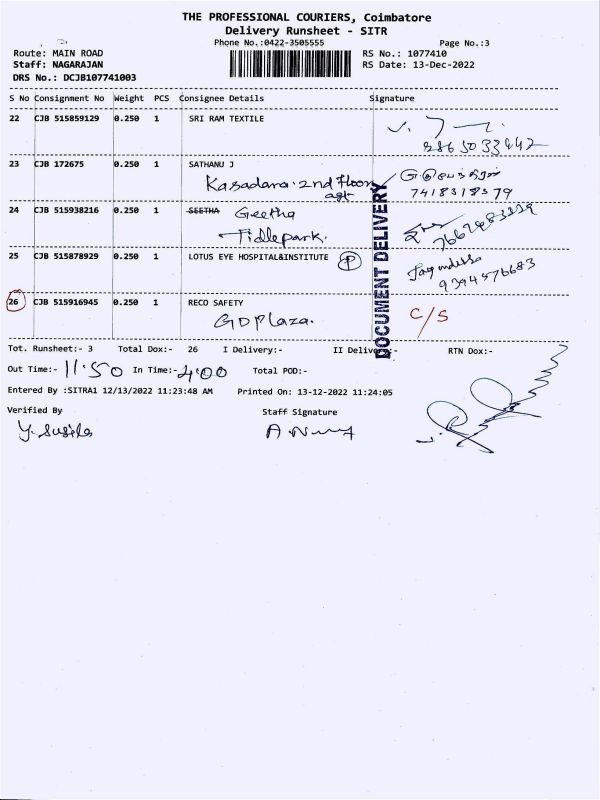 THE PROFESSIONAL COURIERS, Coimbatore
Delivery Runsheet - SITR
Phone No.:0422-3505555 Page No.:3
Route: MAIN ROAD RS No.: 1077410
Staff: NAGARAJAN RS Date: 13-Dec-2022
DRS No.: DCJB107741003
S No Consignment No Weight PCS Consignee Details Signature
22 CJB 515859129 0.250 1 SRI RAM TEXTILE
23 CJB 172675 0.250 1 SATHANU J
Kasadara. 2nd Floor
7418318579
24 CJB 515938216 0.250 1 SEETHA Geetha
Tidlepark.
25 CJB 515878929 0.250 1 LOTUS EYE HOSPITAL&INSTITUTE P
9394576683
26 CJB 515916945 0.250 1 RECO SAFETY C/S
GD Plaza.
DOCUMENT DELIVERY
Tot. Runsheet:- 3 Total Dox:- 26 I Delivery:- II Delivery:- RTN Dox:-
Out Time:- 11.50 In Time:- 4.00 Total POD:-
Entered By :SITRA1 12/13/2022 11:23:48 AM Printed On: 13-12-2022 11:24:05
Verified By Staff Signature
Y. Susila